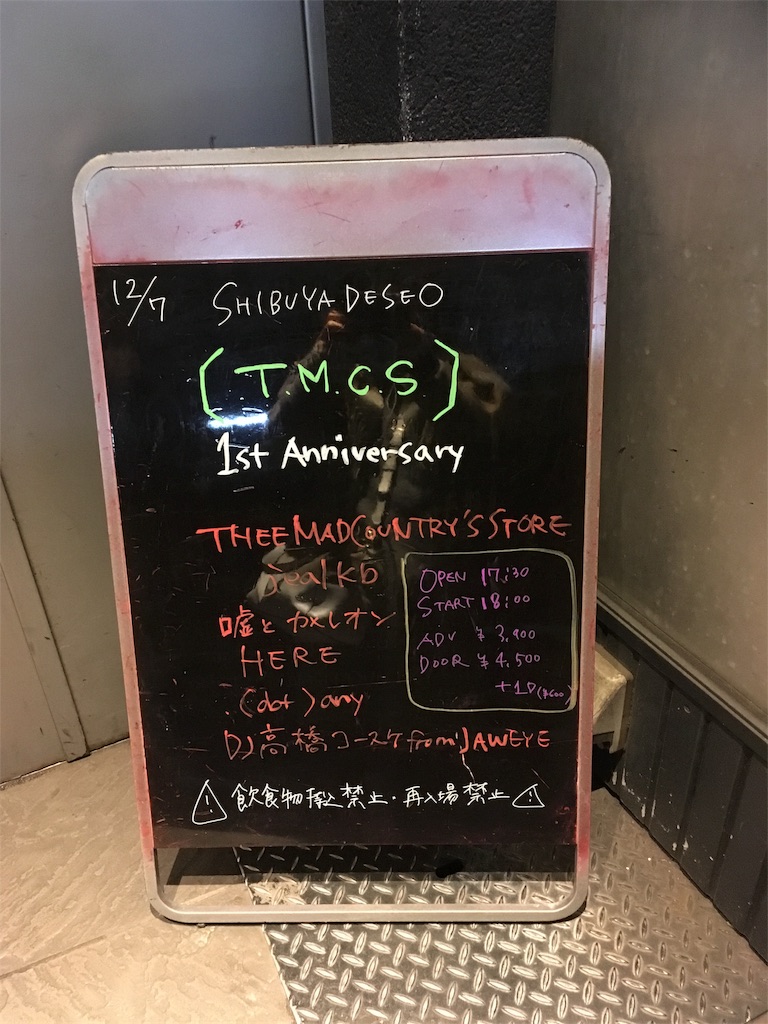 12/7 SHIBUYA DESEO
[T.M.C.S]
1st Anniversary
THEE MAD COUNTRY'S STORE
jealkb
嘘とカメレオン
HERE
(dot)any
DJ高橋コースケ from JAWEYE
OPEN 17:30
START 18:00
ADV ¥3,900
DOOR ¥4,500
+1D(¥600)
⚠飲食物持込禁止・再入場禁止⚠